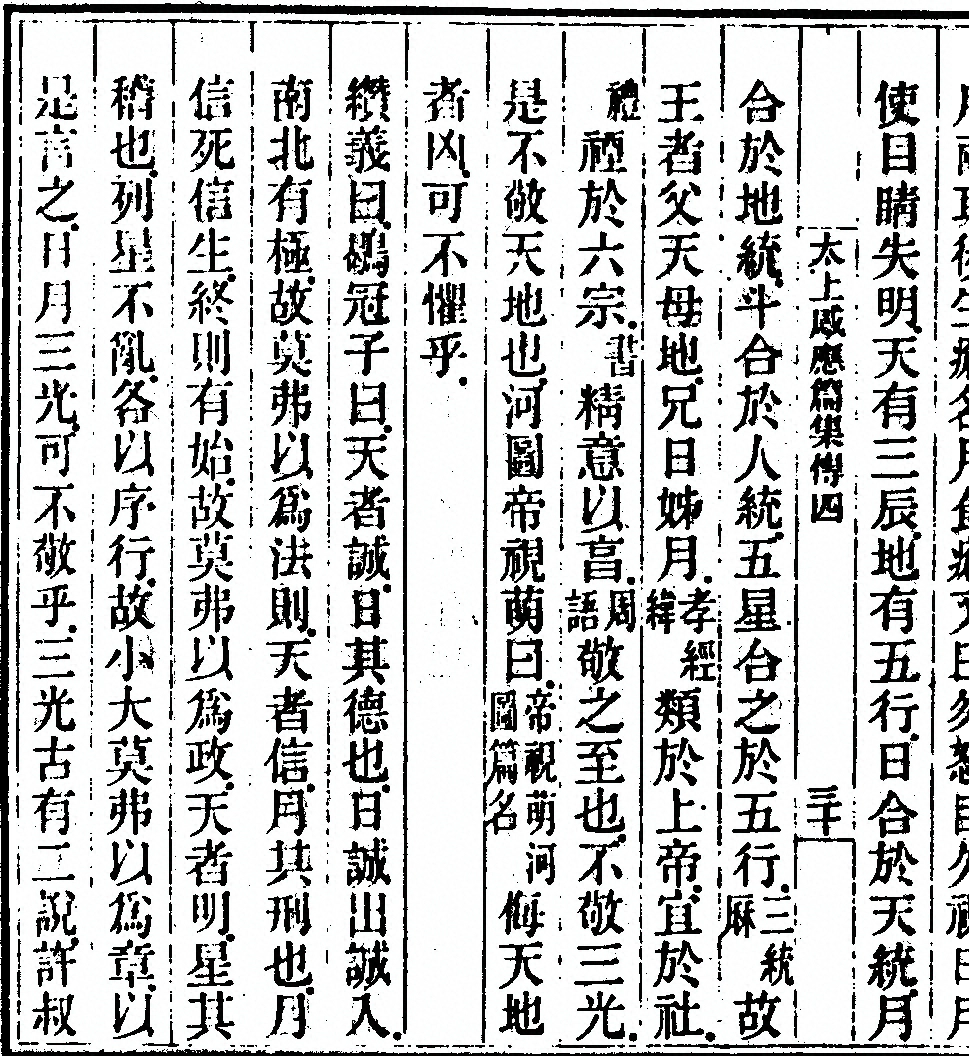 使目睛失明天有三辰地有五行日合於天統月
太上感應篇集傳四
三十
合於地統斗合於人統五星合之於五行三統厤故
王者父天母地兄日姊月孝經緯類於上帝宜於社
禮禋於六宗書精意以亯周語敬之至也不敬三光
是不敬天地也河圖帝視萌曰帝視萌河圖篇名侮天地
者凶可不懼乎
纘義曰鶡冠子曰天者誠日其德也日誠出誠入
南北有極故莫弗以爲法則天者信月其刑也月
信死信生終則有始故莫弗以爲政天者明星其
稽也列星不亂各以序行故小大莫弗以爲章以
是言之日月三光可不敬乎三光古有二說許叔